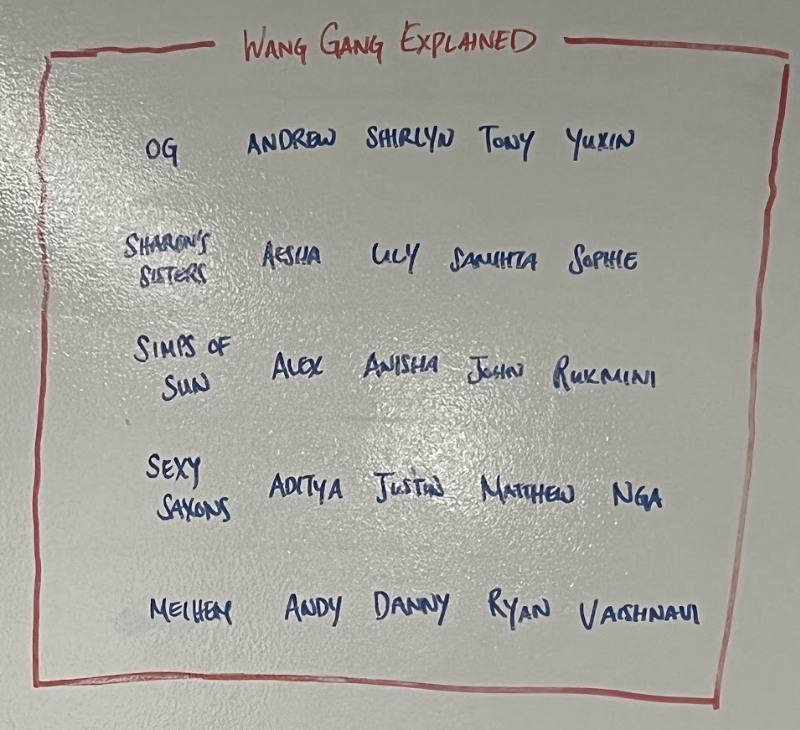 WANG GANG EXPLAINED
OG ANDREW SHIRLYN TONY YUXIN
SHARON'S SISTERS AESHA LILY SAMHITA SOPHIE
SIMPS OF SUN ALEX ANISHA JOHN RUKMINI
SEXY SAXONS ADITYA JUSTIN MATTHEW NGA
MEIHEM ANDY DANNY RYAN VAISHNAVI